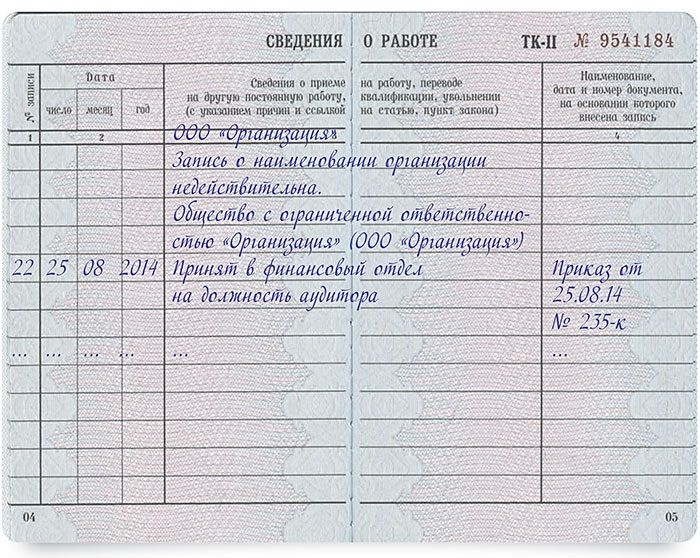 СВЕДЕНИЯ О РАБОТЕ ТК-II № 9541184
№ записи
Дата
число месяц год
Сведения о приеме на работу, переводе
на другую постоянную работу, квалификации, увольнении
(с указанием причин и ссылкой на статью, пункт закона)
Наименование,
дата и номер документа,
на основании которого
внесена запись
1 2 4
ООО «Организация»
Запись о наименовании организации
недействительна.
Общество с ограниченной ответственно-
стью «Организация» (ООО «Организация»)
22 25 08 2014 Принят в финансовый отдел Приказ от
на должность аудитора 25.08.14
№ 235-к
... ... ... ... ... ...
04 05